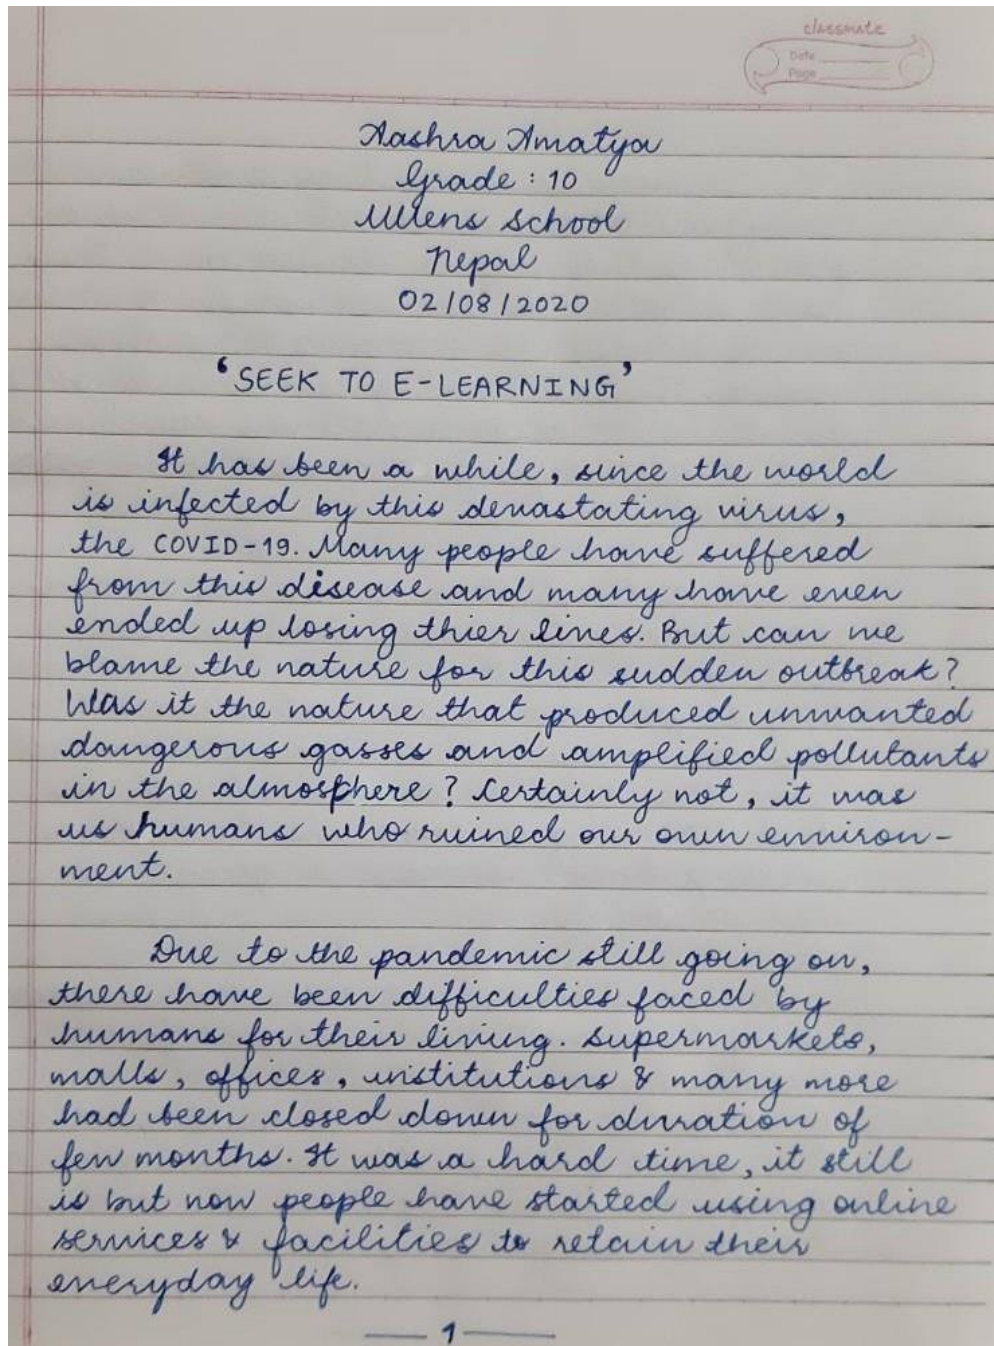 classmate
Date
Page
Aashra Amatya
Grade : 10
Ullens School
Nepal
02/08/2020
'SEEK TO E-LEARNING'
It has been a while, since the world
is infected by this devastating virus,
the COVID-19. Many people have suffered
from this disease and many have even
ended up losing thier lives. But can we
blame the nature for this sudden outbreak?
Was it the nature that produced unwanted
dangerous gasses and amplified pollutants
in the atmosphere? Certainly not, it was
us humans who ruined our own environ-
ment.
Due to the pandemic still going on,
there have been difficulties faced by
humans for their living. Supermarkets,
malls, offices, institutions & many more
had been closed down for duration of
few months. It was a hard time, it still
is but now people have started using online
services & facilities to retain their
everyday life.
1